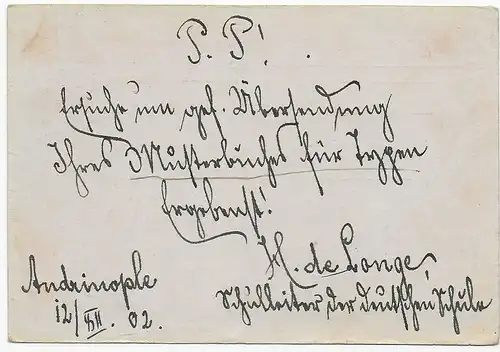 P. P!.
Ersuche um gef. Übersendung
Ihres Musterbuches für Typen
Ergebenst!
H. de Longe,
Schulleiter der deutschen Schule
Andrinople
12/XII. 02.